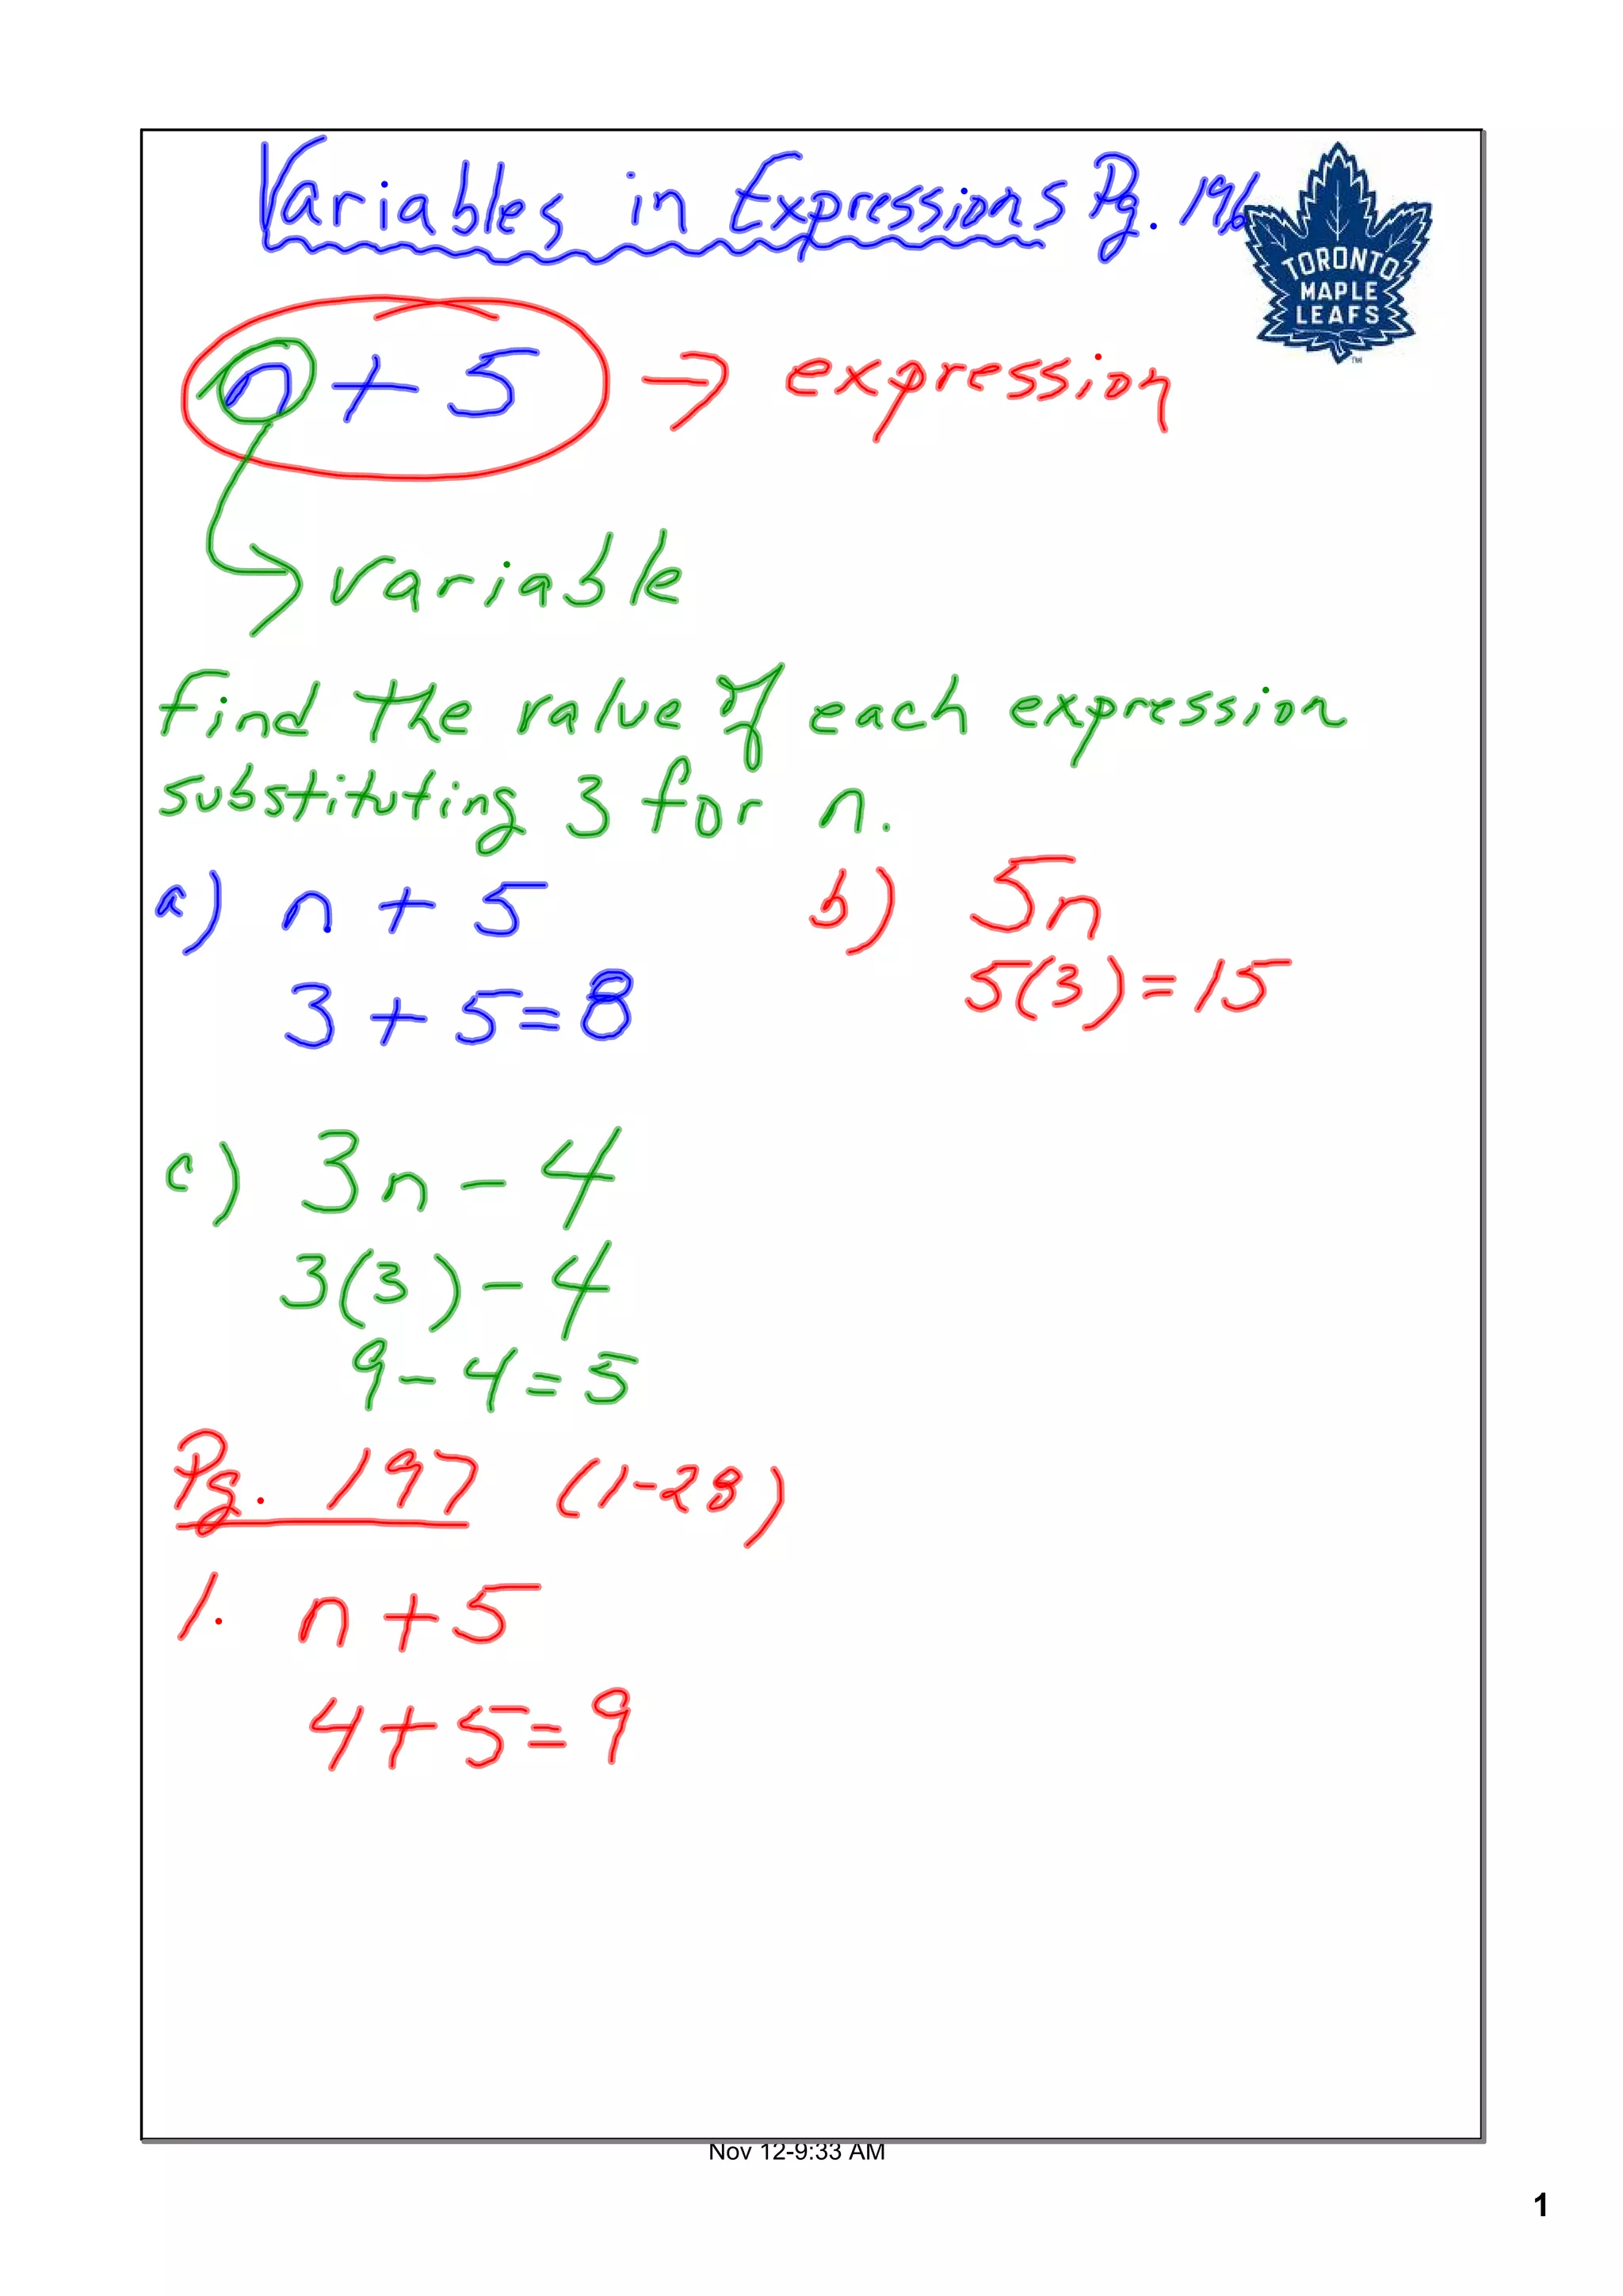 Variables in Expressions Pg. 196
TORONTO
MAPLE
LEAFS
TM
n + 5 → expression
variable
Find the value of each expression
substituting 3 for n.
a) n + 5 b) 5n
3 + 5 = 8 5(3) = 15
c) 3n - 4
3(3) - 4
9 - 4 = 5
Pg. 197 (1-28)
1. n + 5
4 + 5 = 9
Nov 12-9:33 AM
1